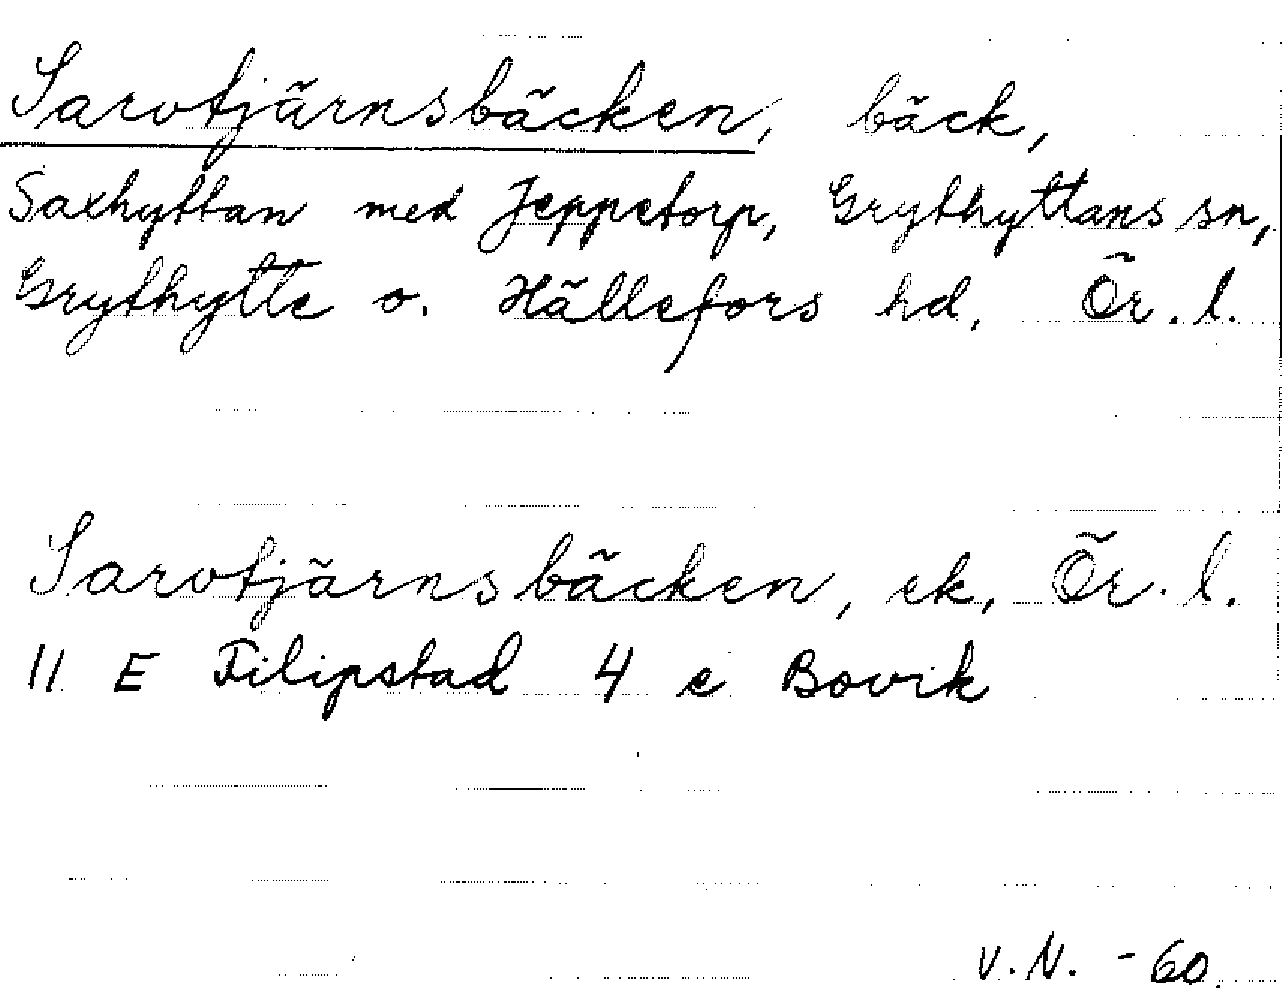 Sarvtjärnsbäcken, bäck,
Saxhyttan med Jeppetorp, Grythyttans sn,
Grythytte o. Hällefors hd, Ör. l.
Sarvtjärnsbäcken, ek. Ör. l.
11 E Filipstad 4 e Bovik
V.N. - 60.